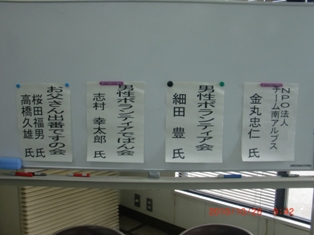 NPO法人
チーム南アルプス
金丸忠仁 氏
男性ボランティア会
細田 豊 氏
男性ボランティアてばん会
志村 幸太郎 氏
お父さん出番ですの会
桜田福男 氏
高橋久雄 氏